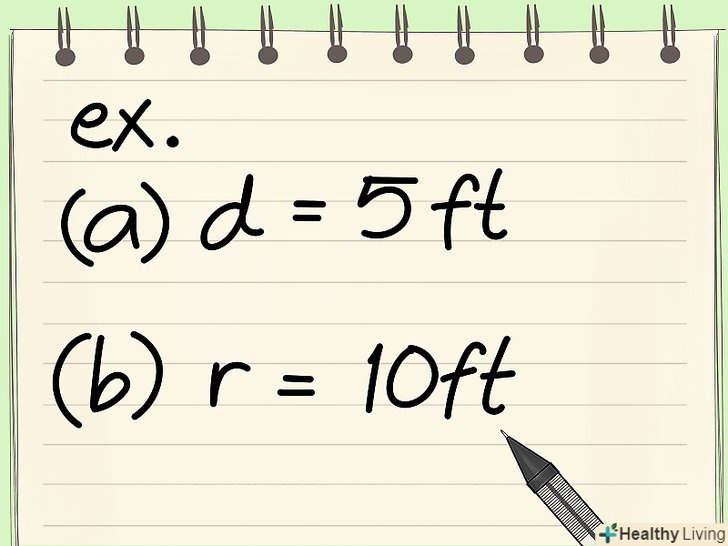 ex.
(a) d = 5 ft
(b) r = 10ft
Healthy Living